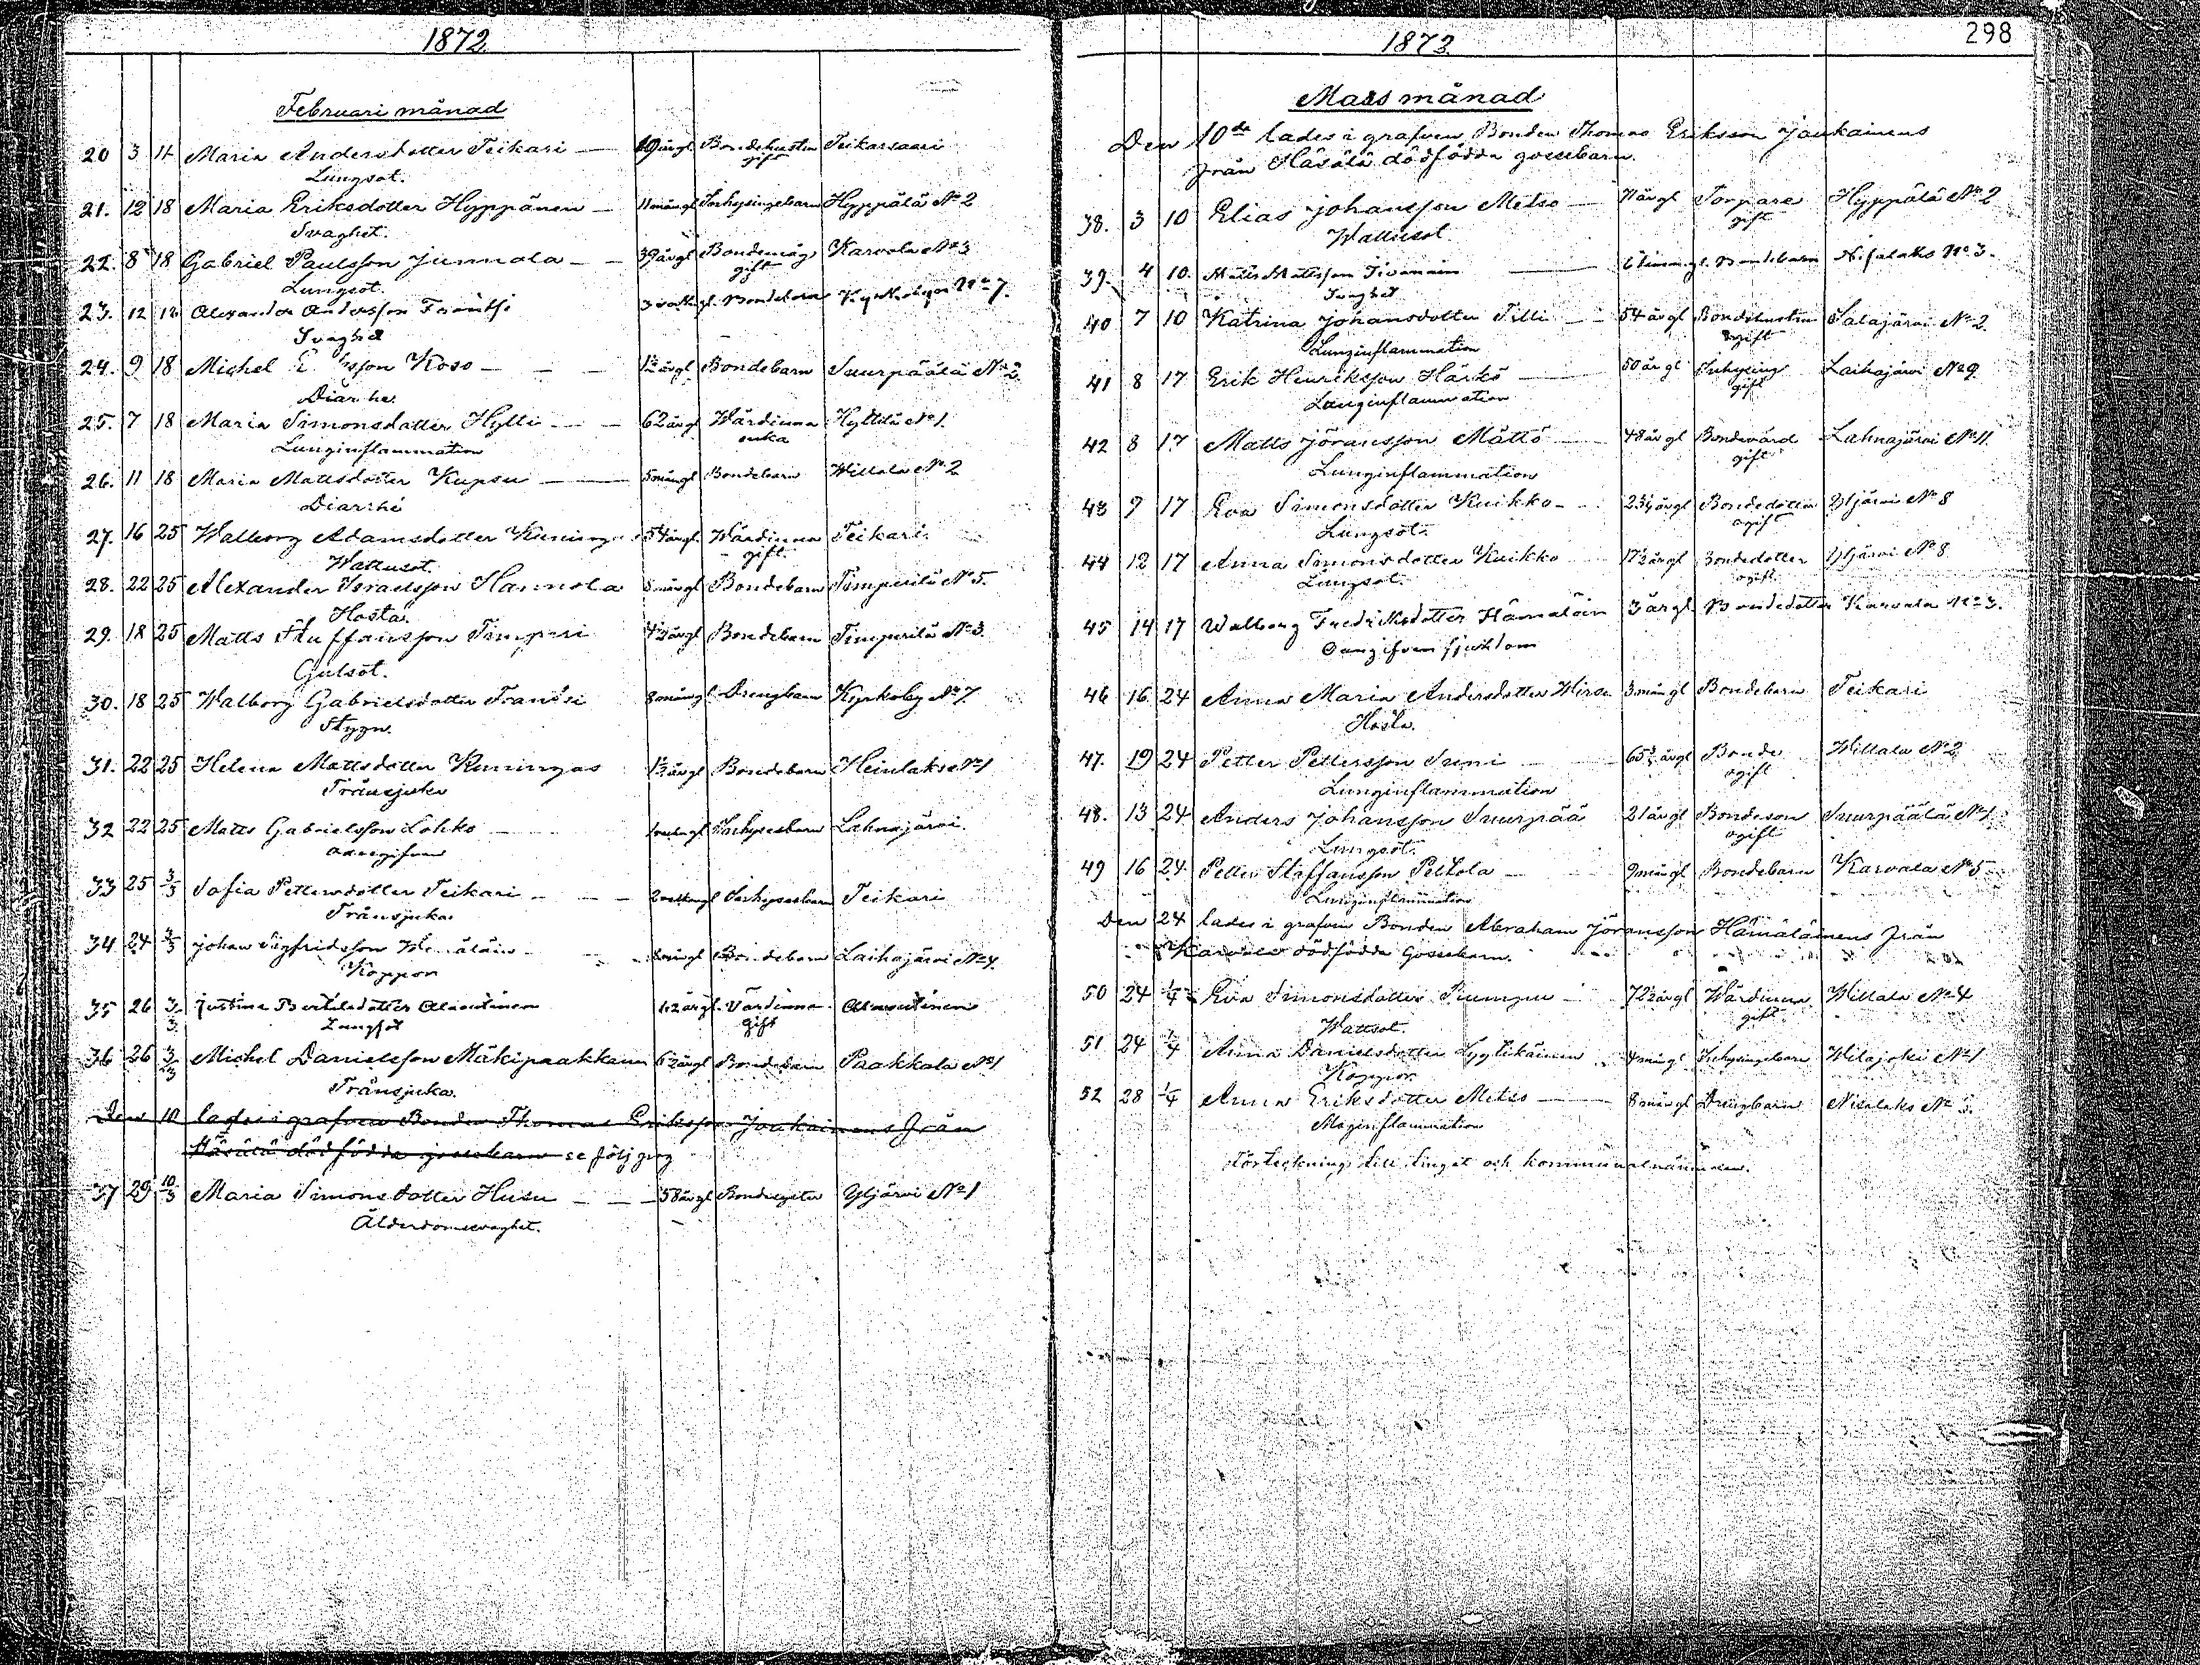 1872
Februari månad
20 3 11 Maria Andersdotter Teikari Bondehustru Teikarsaari
gift
Lungsot.
21. 12 18 Maria Eriksdotter Hyppänen 11 mån gl Inhysingebarn Hyppälä No 2
Svaghet.
22. 8 18 Gabriel Paulsson Junnola 39 år gl Bondemåg Karvala No 3
gift
Lungsot.
23. 12 18 Alexander Andersson Frantsi 3 Bondebarn No 7.
Svaghet
24. 9 18 Michel Koso 1½ år gl Bondebarn Suurpäälä No 2
Diarrhe.
25. 7 18 Maria Simonsdotter Hytti 62 år gl Wärdinna Hyttilä No 1.
enka
Lunginflammation
26. 11 18 Maria Mattsdotter Kupsu 5 mån gl Bondebarn Willala No 2
Diarrhé
27. 16 25 Walborg Adamsdotter 54 år gl Wärdinna Teikari
gift
Wattusot.
28. 22 25 Alexander Israelsson Hannola 8 mån gl Bondebarn Timperilä No 5.
Hosta.
29. 18 25 Matts Staffansson Timperi Bondebarn Timperilä No 3.
Gulsot.
30. 18 25 Walborg Gabrielsdotter Frantsi 8 mån gl Drengbarn Kyrkoby No 7.
Stygn.
31. 22 25 Helena Mattsdotter Kuningas Bondebarn Heinlaks No 1
Trånsjuka
32 22 25 Matts Gabrielsson Lohko Inhysesbarn Lahnajärvi.
33 25 3/3 Sofia Pettersdotter Teikari Inhysesbarn Teikari
Trånsjuka.
34 24 3/3 Johan Sigfridsson Bondebarn Laihajärvi No 4.
Koppor
35 26 3/3 Justina Bertilsdotter Alaoutinen Värdinna Alaoutinen
gift
Lungsot
36 26 3/3 Michel Danielsson Mäkipaakkanen Bondebarn Paakkala No 1
Trånsjuka.
Den 10 lades i grafven Bonden Thomas Eriksson Joukainens från
Häsälä dödfödda gossebarn se följ pag
37 29 10/3 Maria Simonsdotter Husu 58 år gl Ylijärvi No 1
Ålderdomssvaghet.
1872
298
Mars månad
Den 10de lades i grafven Bonden Thomas Eriksson Joukainens
från Häsälä dödfödda gossebarn.
38. 3 10 Elias Johansson Metso 71 år gl Torpare Hyppälä No 2
gift
Wattusot.
39. 4 10. Matts Mattsson Bondebarn Nisalaks No 3.
Svaghet
40 7 10 Katrina Johansdotter Tilli 54 år gl Bondehustru Salajärvi No 2.
gift
Lunginflammation
41 8 17 Erik Henriksson Härkö 50 år gl Inhysing Laihajärvi No 9.
gift
Lunginflammation
42 8 17 Matts Jöransson Mättö 48 år gl Bondevärd Lahnajärvi No 11.
gift
Lunginflammation
43 9 17 Eva Simonsdotter Kuikko Bondedotter Yljärvi No 8
ogift
Lungsot.
44 12 17 Anna Simonsdotter Kuikko 17½ år gl Bondedotter Yljärvi No 8
ogift.
Lungsot.
45 14 17 Walborg Fredriksdotter Hämäläin 3 år gl Bondedotter Karvala No 3.
Oangifven sjukdom
46 16 24 Anna Maria Andersdotter Hirsu 3 mån gl Bondebarn Teikari
Hosta.
47. 19 24 Petter Pettersson Suni Bonde Willala No 2
ogift
Lunginflammation
48. 13 24 Anders Johansson Suurpää 21 år gl Bondeson Suurpäälä No 1.
ogift
Lungsot.
49 16 24 Petter Staffansson Peltola 9 mån gl Bondebarn Karvala No 5
Lunginflammation
Den 24 lades i grafven Bonden Abraham Jöransson Hämäläinens från
Karvala dödfödda Gossebarn.
50 24 1/4 Eva Simonsdotter Pumpu 72½ år gl Wärdinna Willala No 4
gift
Wattsot.
51 24 1/4 Anna Danielsdotter Lyytikäinen 4 mån gl Inhysingebarn Wilajoki No 1
Koppor
52 28 1/4 Anna Eriksdotter Metso 8 mån gl Drengbarn Nisalaks No 3.
Maginflammation
Förteckning till tinget och kommunalnämnden.